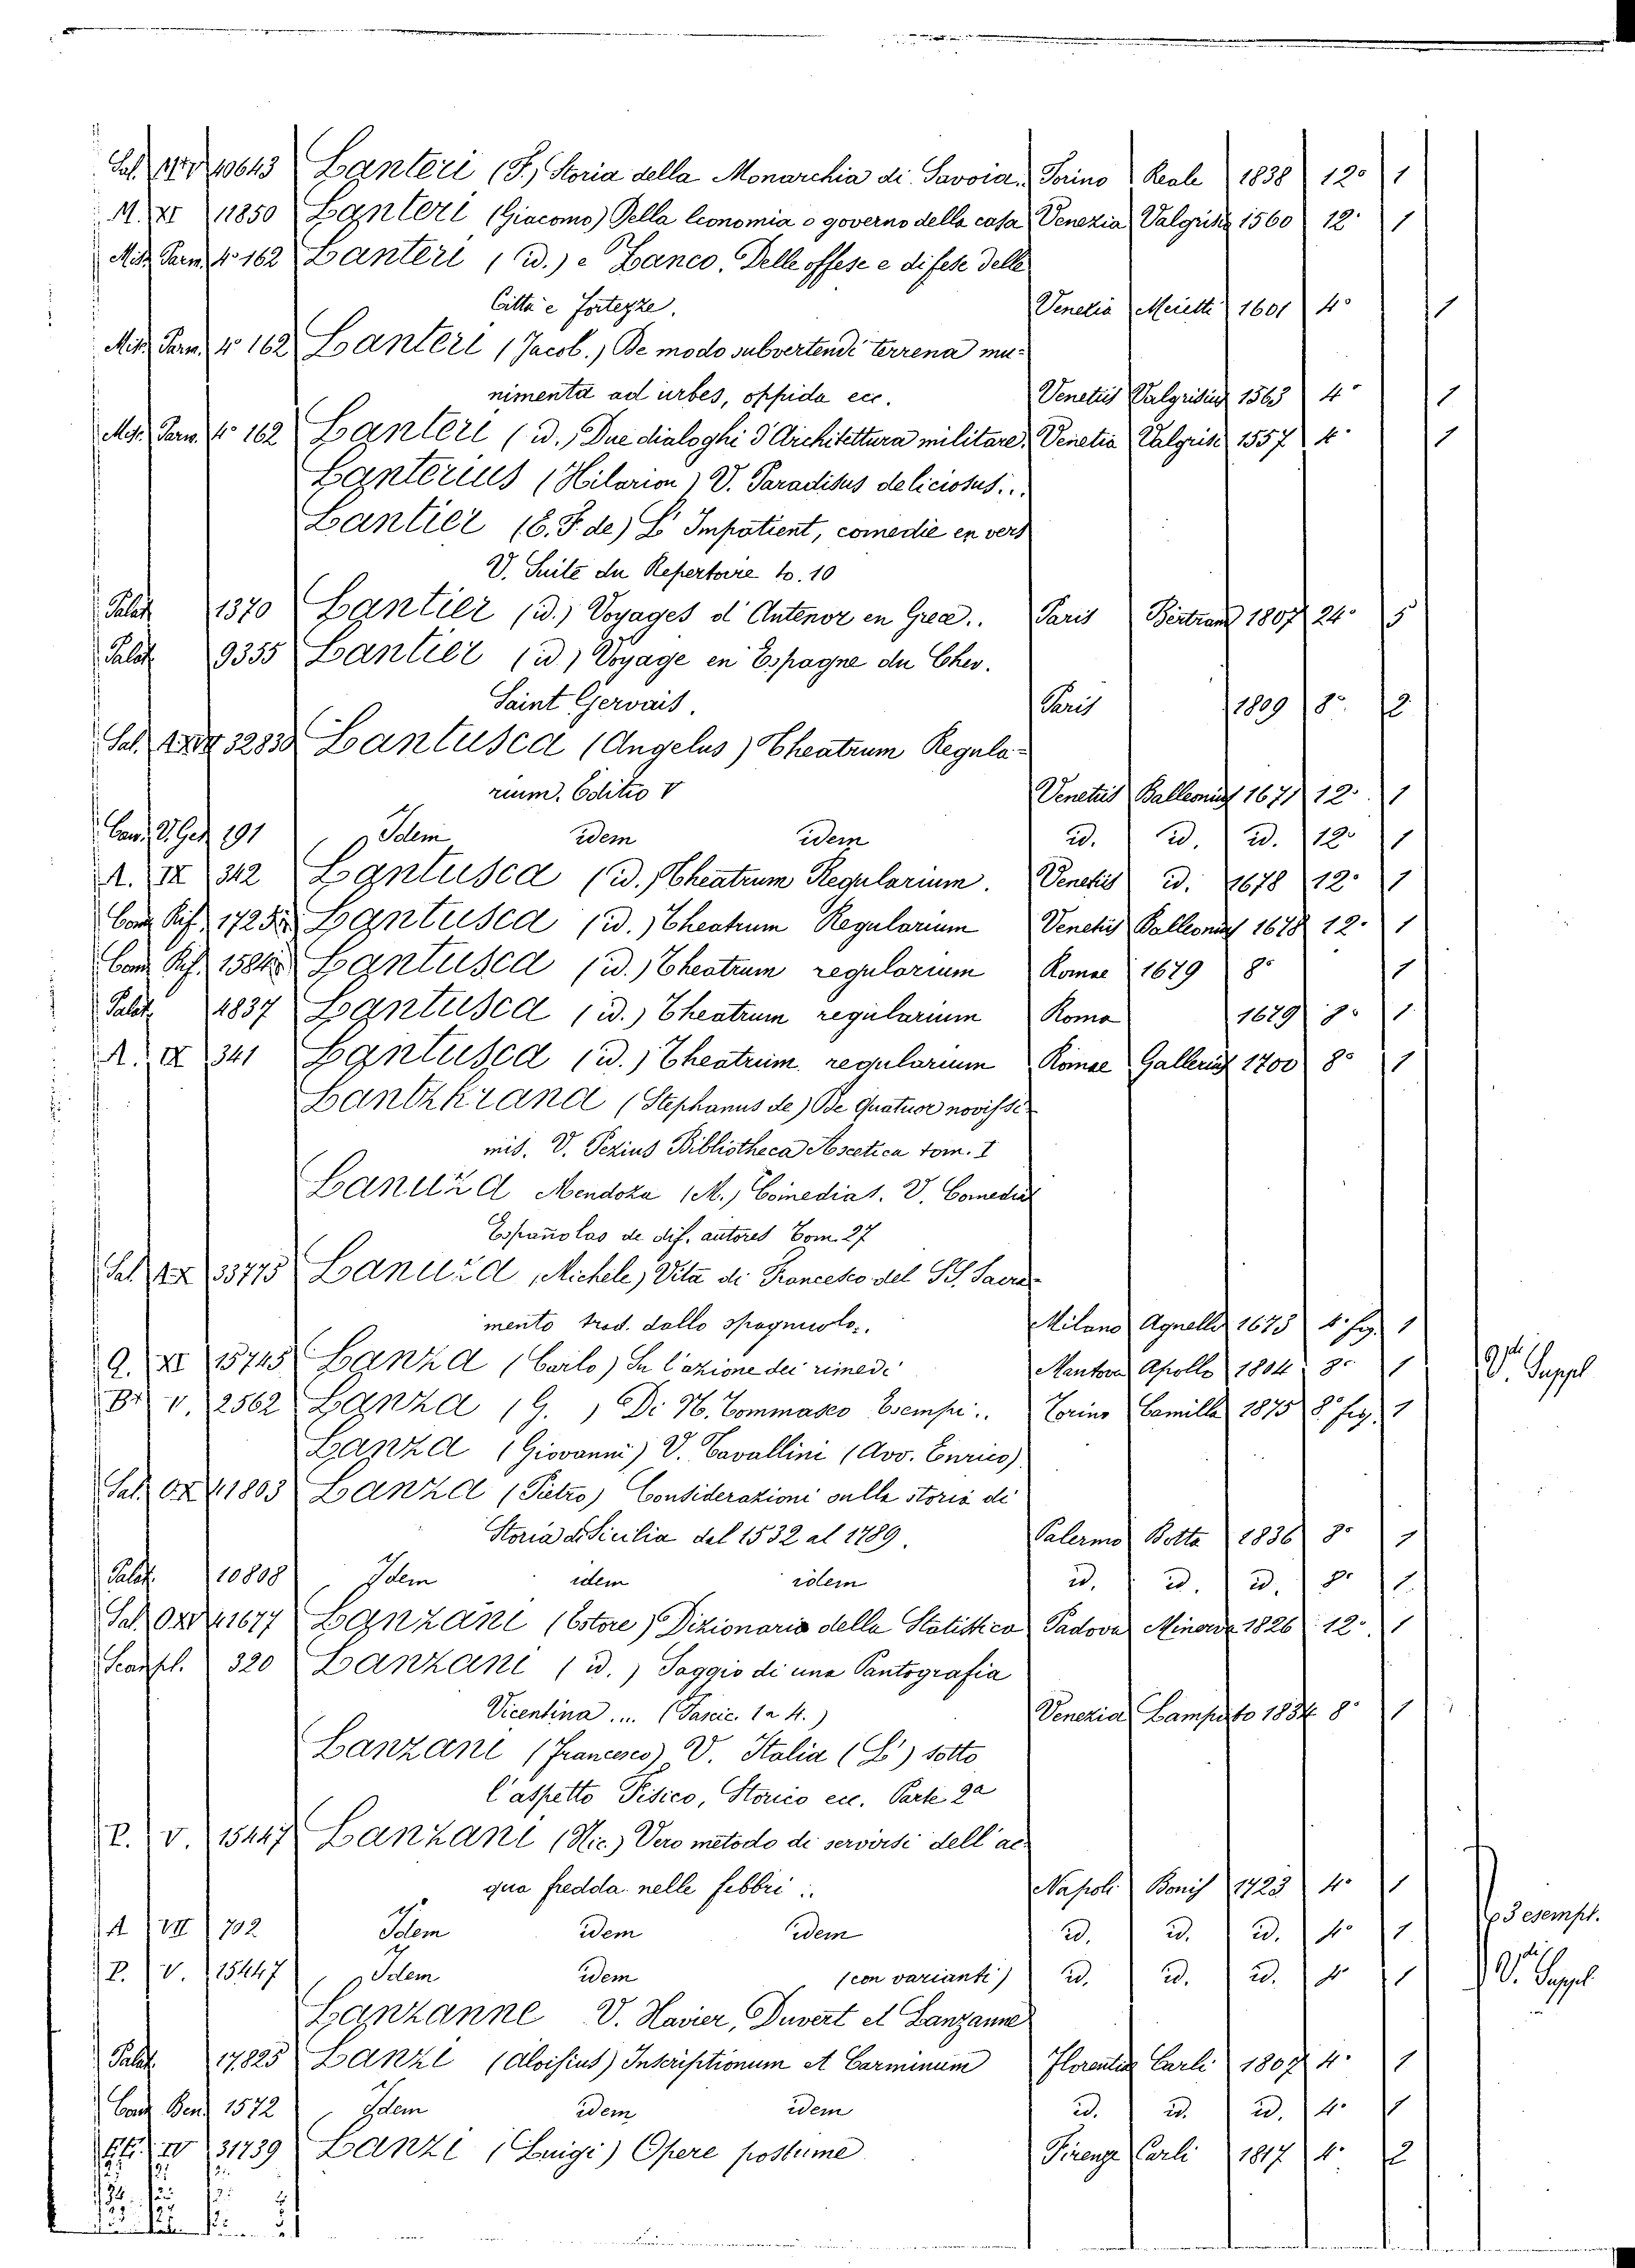 Sal. 10643 Lanteri (F.) Storia della Monarchia di Savoia. Torino Reale 1838 12° 1
M. XI 11850 Lanteri (Giacomo) Della Economia o governo della casa Venezia Valgrisi 1560 12° 1
Mis. Parm. 4° 162 Lanteri (id.) e Zanco. Delle offese e difese delle
Città e fortezze. Venezia Meietti 1601 4° 1
Mis. Parm. 4° 162 Lanteri (Jacob.) De modo subvertendi terrena mu-
nimenta ad urbes, oppida ecc. Venetiis Valgrisius 1563 4° 1
Mis. Parm. 4° 162 Lanteri (id.) Due dialoghi d'Architettura militare. Venetia Valgrisi 1557 4° 1
Lanterius (Hilarion) V. Paradisus deliciosus...
Lantier (E. F. de) L'Impatient, comedie en vers
V. Suite du Repertoire to. 10
Palat. 1370 Lantier (id.) Voyages d'Antenor en Grèce.. Paris Bertrand 1807 24° 5
Palat. 9355 Lantier (id.) Voyage en Espagne du Chev.
Saint Gervais. Paris 1809 8° 2
Sal. 32830 Lantusca (Angelus) Theatrum Regula-
rium. Editio V Venetiis Balleonius 1671 12° 1
Con. V. Ges. 191 Idem idem idem id. id. id. 12° 1
A. IX 342 Lantusca (id.) Theatrum Regularium. Venetiis id. 1678 12° 1
Conv. Rif. 1725 Lantusca (id.) Theatrum Regularium Venetiis Balleonius 1678 12° 1
Conv. Rif. 1584 Lantusca (id.) Theatrum regularium Romae 1679 8° 1
Palat. 4837 Lantusca (id.) Theatrum regularium Roma 1679 8° 1
A. IX 341 Lantusca (id.) Theatrum regularium Romae Gallerius 1700 8° 1
Lantzkrana (Stephanus de) De Quatuor novissi-
mis. V. Pezius Bibliotheca Ascetica tom. I
Lanuza Mendoza (M.) Comedias. V. Comedias
Españolas de dif. autores Tom. 27
Sal. 33775 Lanuza (Michele) Vita di Francesco del SS. Sacra-
mento trad. dallo spagnuolo.. Milano Agnelli 1675 4° fig. 1
Q. XI 15745 Lanza (Carlo) Su l'azione dei rimedi Mantova Apollo 1804 8° 1 V. Suppl
B. V. 2562 Lanza (G.) Di N. Tommaseo Esempi.. Torino Camilla 1875 8° fig. 1
Lanza (Giovanni) V. Cavallini (Avv. Enrico)
Sal. 41803 Lanza (Pietro) Considerazioni sulla storia di
Storia di Sicilia dal 1532 al 1789. Palermo Botta 1836 8° 1
Palat. 10808 Idem idem idem id. id. id. 8° 1
Sal. 41677 Lanzani (Estore) Dizionario della Statistica Padova Minerva 1826 12° 1
320 Lanzani (id.) Saggio di una Pantografia
Vicentina .... (Fascic. 1 a 4.) Venezia Lampato 1834 8° 1
Lanzani (Francesco) V. Italia (L') sotto
l'aspetto Fisico, Storico ecc. Parte 2a
P. V. 15447 Lanzani (Nic.) Vero metodo di servirsi dell'ac-
qua fredda nelle febbri .. Napoli Bonis 1723 4° 1
A VII 702 Idem idem idem id. id. id. 4° 1 3 esempl.
P. V. 15447 Idem idem (con varianti) id. id. id. 4° 1 V. Suppl
Lanzanne V. Xavier, Duvert et Lanzanne
Palat. 17825 Lanzi (Aloisius) Inscriptionum et Carminum Florentiae Carli 1807 4° 1
Conv. Ben. 1572 Idem idem idem id. id. id. 4° 1
IV 31739 Lanzi (Luigi) Opere postume Firenze Carli 1817 4° 2